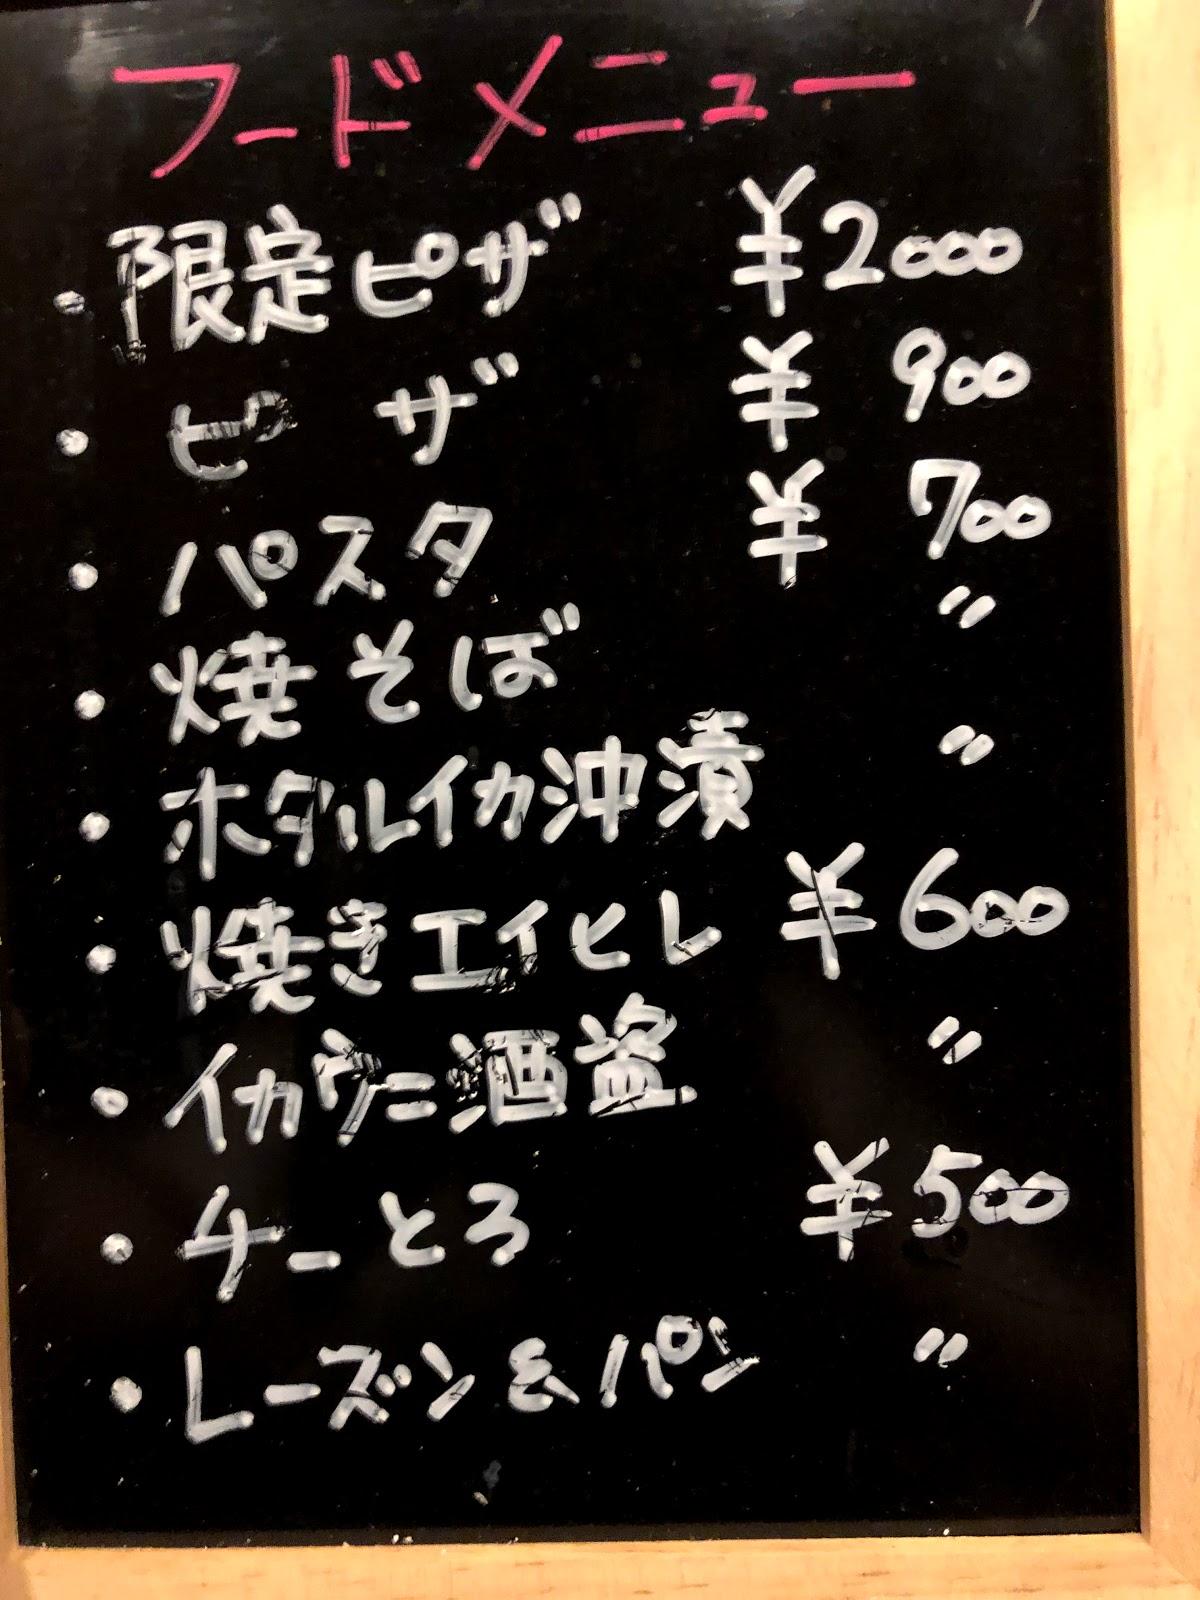 フードメニュー
・限定ピザ ¥2000
・ピザ ¥900
・パスタ ¥700
・焼そば 〃
・ホタルイカ沖漬 〃
・焼きエイヒレ ¥600
・イカウニ酒盗 〃
・チーとろ ¥500
・レーズン&パン 〃